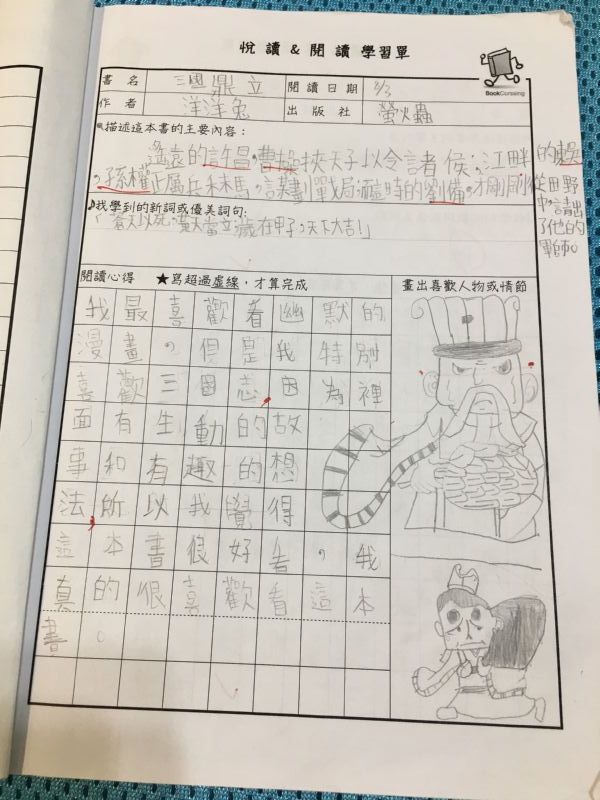 悅讀&閱讀學習單
BookCrossing
書名 三國鼎立 閱讀日期 2/3
作者 洋洋兔 出版社 螢火蟲
描述這本書的主要內容:
遙遠的許昌,曹操挾天子以令諸侯;江畔的東吳
,孫權正厲兵秣馬,謀劃戰局;此時的劉備,才剛剛從田野
中,請出
了他的
軍師。
我學到的新詞或優美詞句:
「蒼天以死,黃天當立,歲在甲子,天下大吉!」
閱讀心得 ★寫超過虛線,才算完成 畫出喜歡人物或情節
我最喜歡看幽默的
漫畫,但是我特別
喜歡三國志,因為裡
面有生動的故
事和有趣的想
法,所以我覺得
這本書很好看,我
真的很喜歡看這本
書。